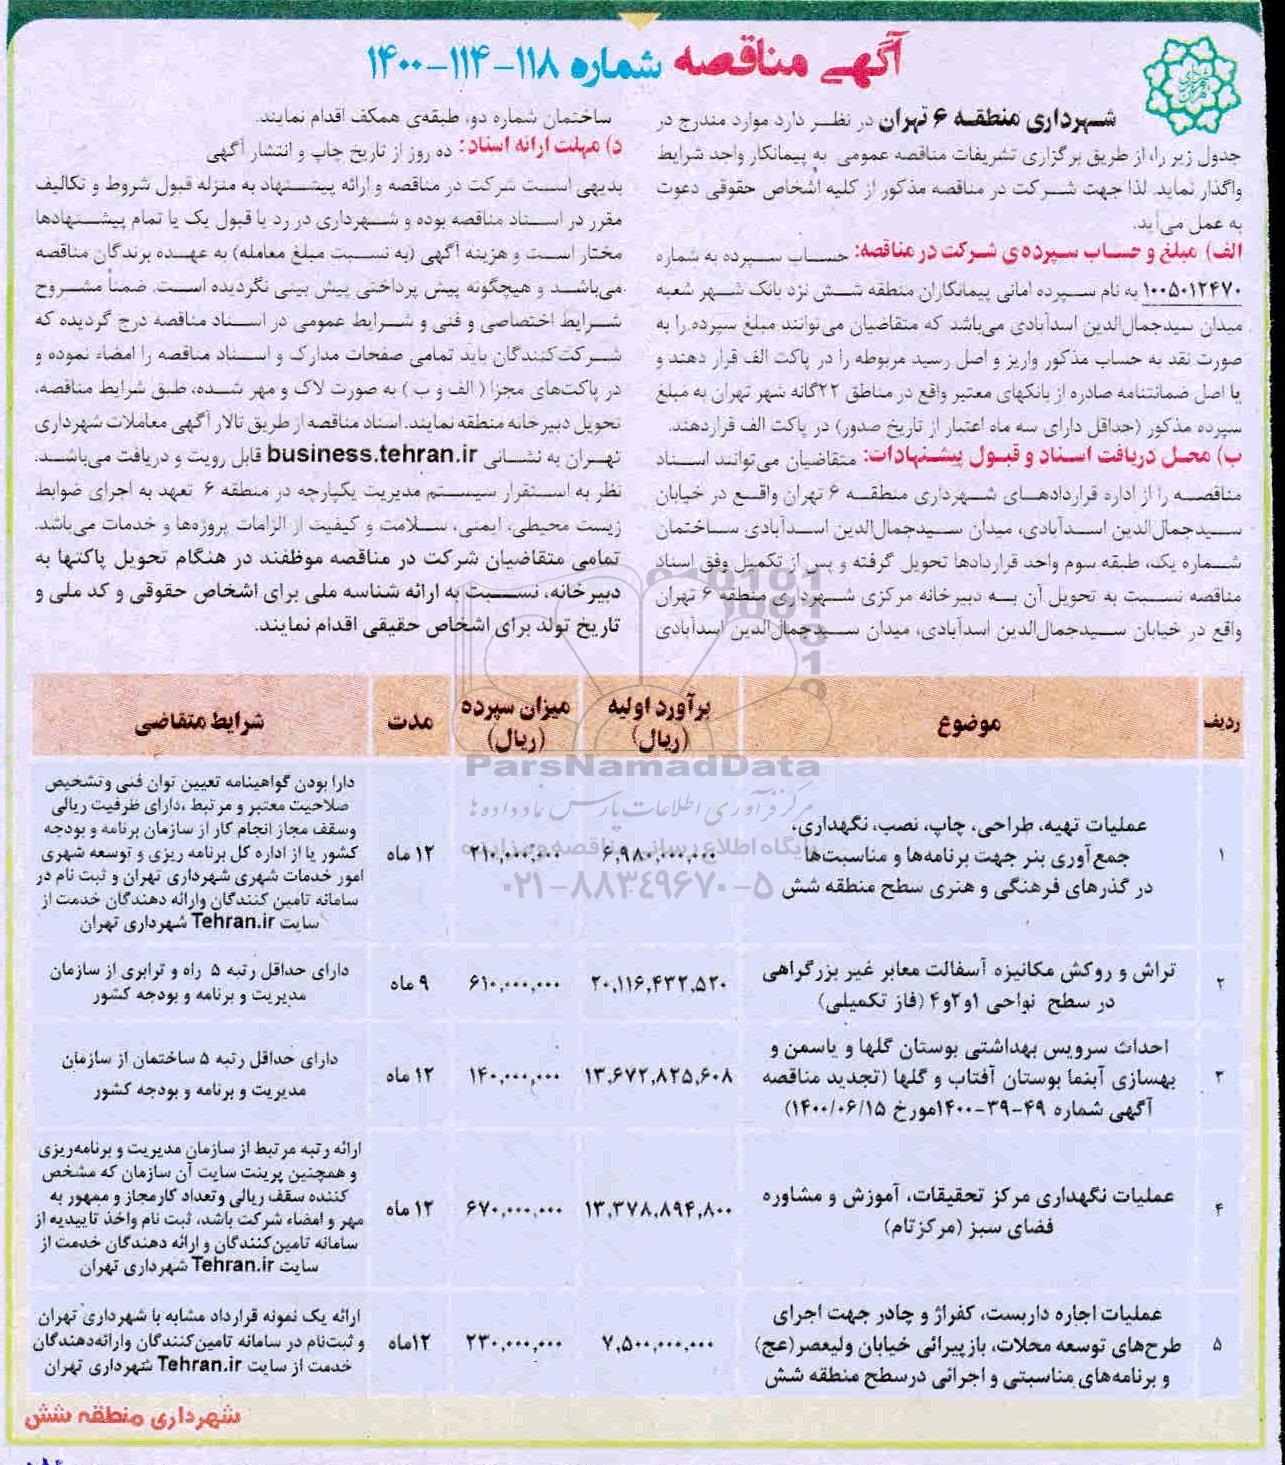 آگهی مناقصه شماره ۱۱۸-۱۱۴-۱۴۰۰
شهرداری منطقه ۶ تهران در نظر دارد موارد مندرج در
جدول زیر را، از طریق برگزاری تشریفات مناقصه عمومی به پیمانکار واجد شرایط
واگذار نماید. لذا جهت شرکت در مناقصه مذکور از کلیه اشخاص حقوقی دعوت
به عمل می‌آید.
الف) مبلغ و حساب سپرده‌ی شرکت در مناقصه: حساب سپرده به شماره
۱۰۰۵۰۱۲۴۷۰ به نام سپرده امانی پیمانکاران منطقه شش نزد بانک شهر شعبه
میدان سیدجمال‌الدین اسدآبادی می‌باشد که متقاضیان می‌توانند مبلغ سپرده را به
صورت نقد به حساب مذکور واریز و اصل رسید مربوطه را در پاکت الف قرار دهند و
یا اصل ضمانتنامه صادره از بانکهای معتبر واقع در مناطق ۲۲گانه شهر تهران به مبلغ
سپرده مذکور (حداقل دارای سه ماه اعتبار از تاریخ صدور) در پاکت الف قراردهند.
ب) محل دریافت اسناد و قبول پیشنهادات: متقاضیان می‌توانند اسناد
مناقصه را از اداره قراردادهای شهرداری منطقه ۶ تهران واقع در خیابان
سیدجمال‌الدین اسدآبادی، میدان سیدجمال‌الدین اسدآبادی ساختمان
شماره یک، طبقه سوم واحد قراردادها تحویل گرفته و پس از تکمیل وفق اسناد
مناقصه نسبت به تحویل آن به دبیرخانه مرکزی شهرداری منطقه ۶ تهران
واقع در خیابان سیدجمال‌الدین اسدآبادی، میدان سیدجمال‌الدین اسدآبادی
ساختمان شماره دو، طبقه‌ی همکف اقدام نمایند.
د) مهلت ارائه اسناد: ده روز از تاریخ چاپ و انتشار آگهی
بدیهی است شرکت در مناقصه و ارائه پیشنهاد به منزله قبول شروط و تکالیف
مقرر در اسناد مناقصه بوده و شهرداری در رد یا قبول یک یا تمام پیشنهادها
مختار است و هزینه آگهی (به نسبت مبلغ معامله) به عهده برندگان مناقصه
می‌باشد و هیچگونه پیش پرداختی پیش بینی نگردیده است. ضمناً مشروح
شرایط اختصاصی و فنی و شرایط عمومی در اسناد مناقصه درج گردیده که
شرکت‌کنندگان باید تمامی صفحات مدارک و اسناد مناقصه را امضاء نموده و
در پاکت‌های مجزا ( الف و ب ) به صورت لاک و مهر شده، طبق شرایط مناقصه،
تحویل دبیرخانه منطقه نمایند. اسناد مناقصه از طریق تالار آگهی معاملات شهرداری
تهران به نشانی business.tehran.ir قابل رویت و دریافت می‌باشد.
نظر به استقرار سیستم مدیریت یکپارچه در منطقه ۶ تعهد به اجرای ضوابط
زیست محیطی، ایمنی، سلامت و کیفیت از الزامات پروژه‌ها و خدمات می‌باشد.
تمامی متقاضیان شرکت در مناقصه موظفند در هنگام تحویل پاکتها به
دبیرخانه، نسبت به ارائه شناسه ملی برای اشخاص حقوقی و کد ملی و
تاریخ تولد برای اشخاص حقیقی اقدام نمایند.
ردیف موضوع برآورد اولیه (ریال) میزان سپرده (ریال) مدت شرایط متقاضی
۱
عملیات تهیه، طراحی، چاپ، نصب، نگهداری،
جمع‌آوری بنر جهت برنامه‌ها و مناسبت‌ها
در گذرهای فرهنگی و هنری سطح منطقه شش
۶,۹۸۰,۰۰۰,۰۰۰
۲۱۰,۰۰۰,۰۰۰
۱۲ ماه
دارا بودن گواهینامه تعیین توان فنی وتشخیص
صلاحیت معتبر و مرتبط ،دارای ظرفیت ریالی
وسقف مجاز انجام کار از سازمان برنامه و بودجه
کشور یا از اداره کل برنامه ریزی و توسعه شهری
امور خدمات شهری شهرداری تهران و ثبت نام در
سامانه تامین کنندگان وارائه دهندگان خدمت از
سایت Tehran.ir شهرداری تهران
۲
تراش و روکش مکانیزه آسفالت معابر غیر بزرگراهی
در سطح نواحی ۱و۲و۴ (فاز تکمیلی)
۲۰,۱۱۶,۴۳۲,۵۲۰
۶۱۰,۰۰۰,۰۰۰
۹ ماه
دارای حداقل رتبه ۵ راه و ترابری از سازمان
مدیریت و برنامه و بودجه کشور
۳
احداث سرویس بهداشتی بوستان گلها و یاسمن و
بهسازی آبنما بوستان آفتاب و گلها (تجدید مناقصه
آگهی شماره ۴۹-۳۹-۱۴۰۰مورخ ۱۴۰۰/۰۶/۱۵)
۱۳,۶۷۲,۸۲۵,۶۰۸
۱۴۰,۰۰۰,۰۰۰
۱۲ ماه
دارای حداقل رتبه ۵ ساختمان از سازمان
مدیریت و برنامه و بودجه کشور
۴
عملیات نگهداری مرکز تحقیقات، آموزش و مشاوره
فضای سبز (مرکزتام)
۱۳,۳۷۸,۸۹۴,۸۰۰
۶۷۰,۰۰۰,۰۰۰
۱۲ ماه
ارائه رتبه مرتبط از سازمان مدیریت و برنامه‌ریزی
و همچنین پرینت سایت آن سازمان که مشخص
کننده سقف ریالی وتعداد کارمجاز و ممهور به
مهر و امضاء شرکت باشد، ثبت نام واخذ تاییدیه از
سامانه تامین‌کنندگان و ارائه دهندگان خدمت از
سایت Tehran.ir شهرداری تهران
۵
عملیات اجاره داربست، کفراژ و چادر جهت اجرای
طرح‌های توسعه محلات، بازپیرائی خیابان ولیعصر(عج)
و برنامه‌های مناسبتی و اجرائی درسطح منطقه شش
۷,۵۰۰,۰۰۰,۰۰۰
۲۳۰,۰۰۰,۰۰۰
۱۲ماه
ارائه یک نمونه قرارداد مشابه با شهرداری تهران
و ثبت‌نام در سامانه تامین‌کنندگان وارائه‌دهندگان
خدمت از سایت Tehran.ir شهرداری تهران
شهرداری منطقه شش
ParsNamadData
مرکز فرآوری اطلاعات پارس نماد داده ها
پایگاه اطلاع رسانی مناقصه و مزایده
۰۲۱-۸۸۳۴۹۶۷۰-۵